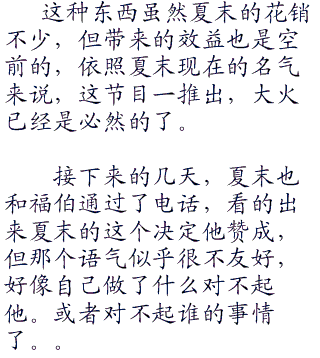 这种东西虽然夏末的花销
不少，但带来的效益也是空
前的，依照夏末现在的名气
来说，这节目一推出，大火
已经是必然的了。
接下来的几天，夏末也
和福伯通过了电话，看的出
来夏末的这个决定他赞成，
但那个语气似乎很不友好，
好像自己做了什么对不起
他。或者对不起谁的事情
了。。